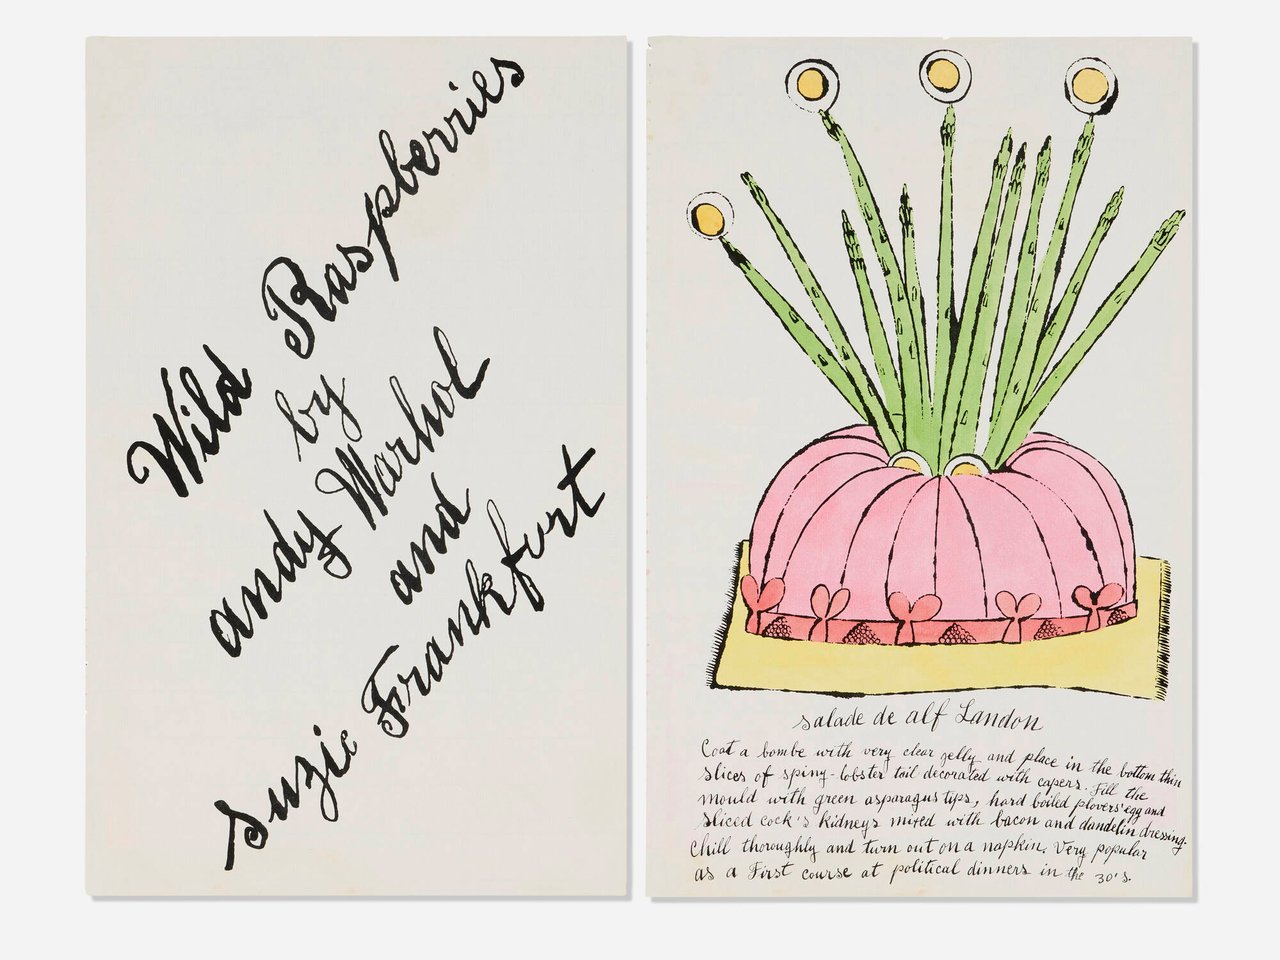 Wild Raspberries
by
andy Warhol
and
suzie Frankfurt
salade de alf Landon
Coat a bombe with very clear jelly and place in the bottom thin
slices of spiny-lobster tail decorated with capers. Fill the
mould with green asparagus tips, hard boiled plovers' egg and
sliced cock's kidneys mixed with bacon and dandelin dressing.
Chill thoroughly and turn out on a napkin. Very popular
as a First course at political dinners in the 30's.